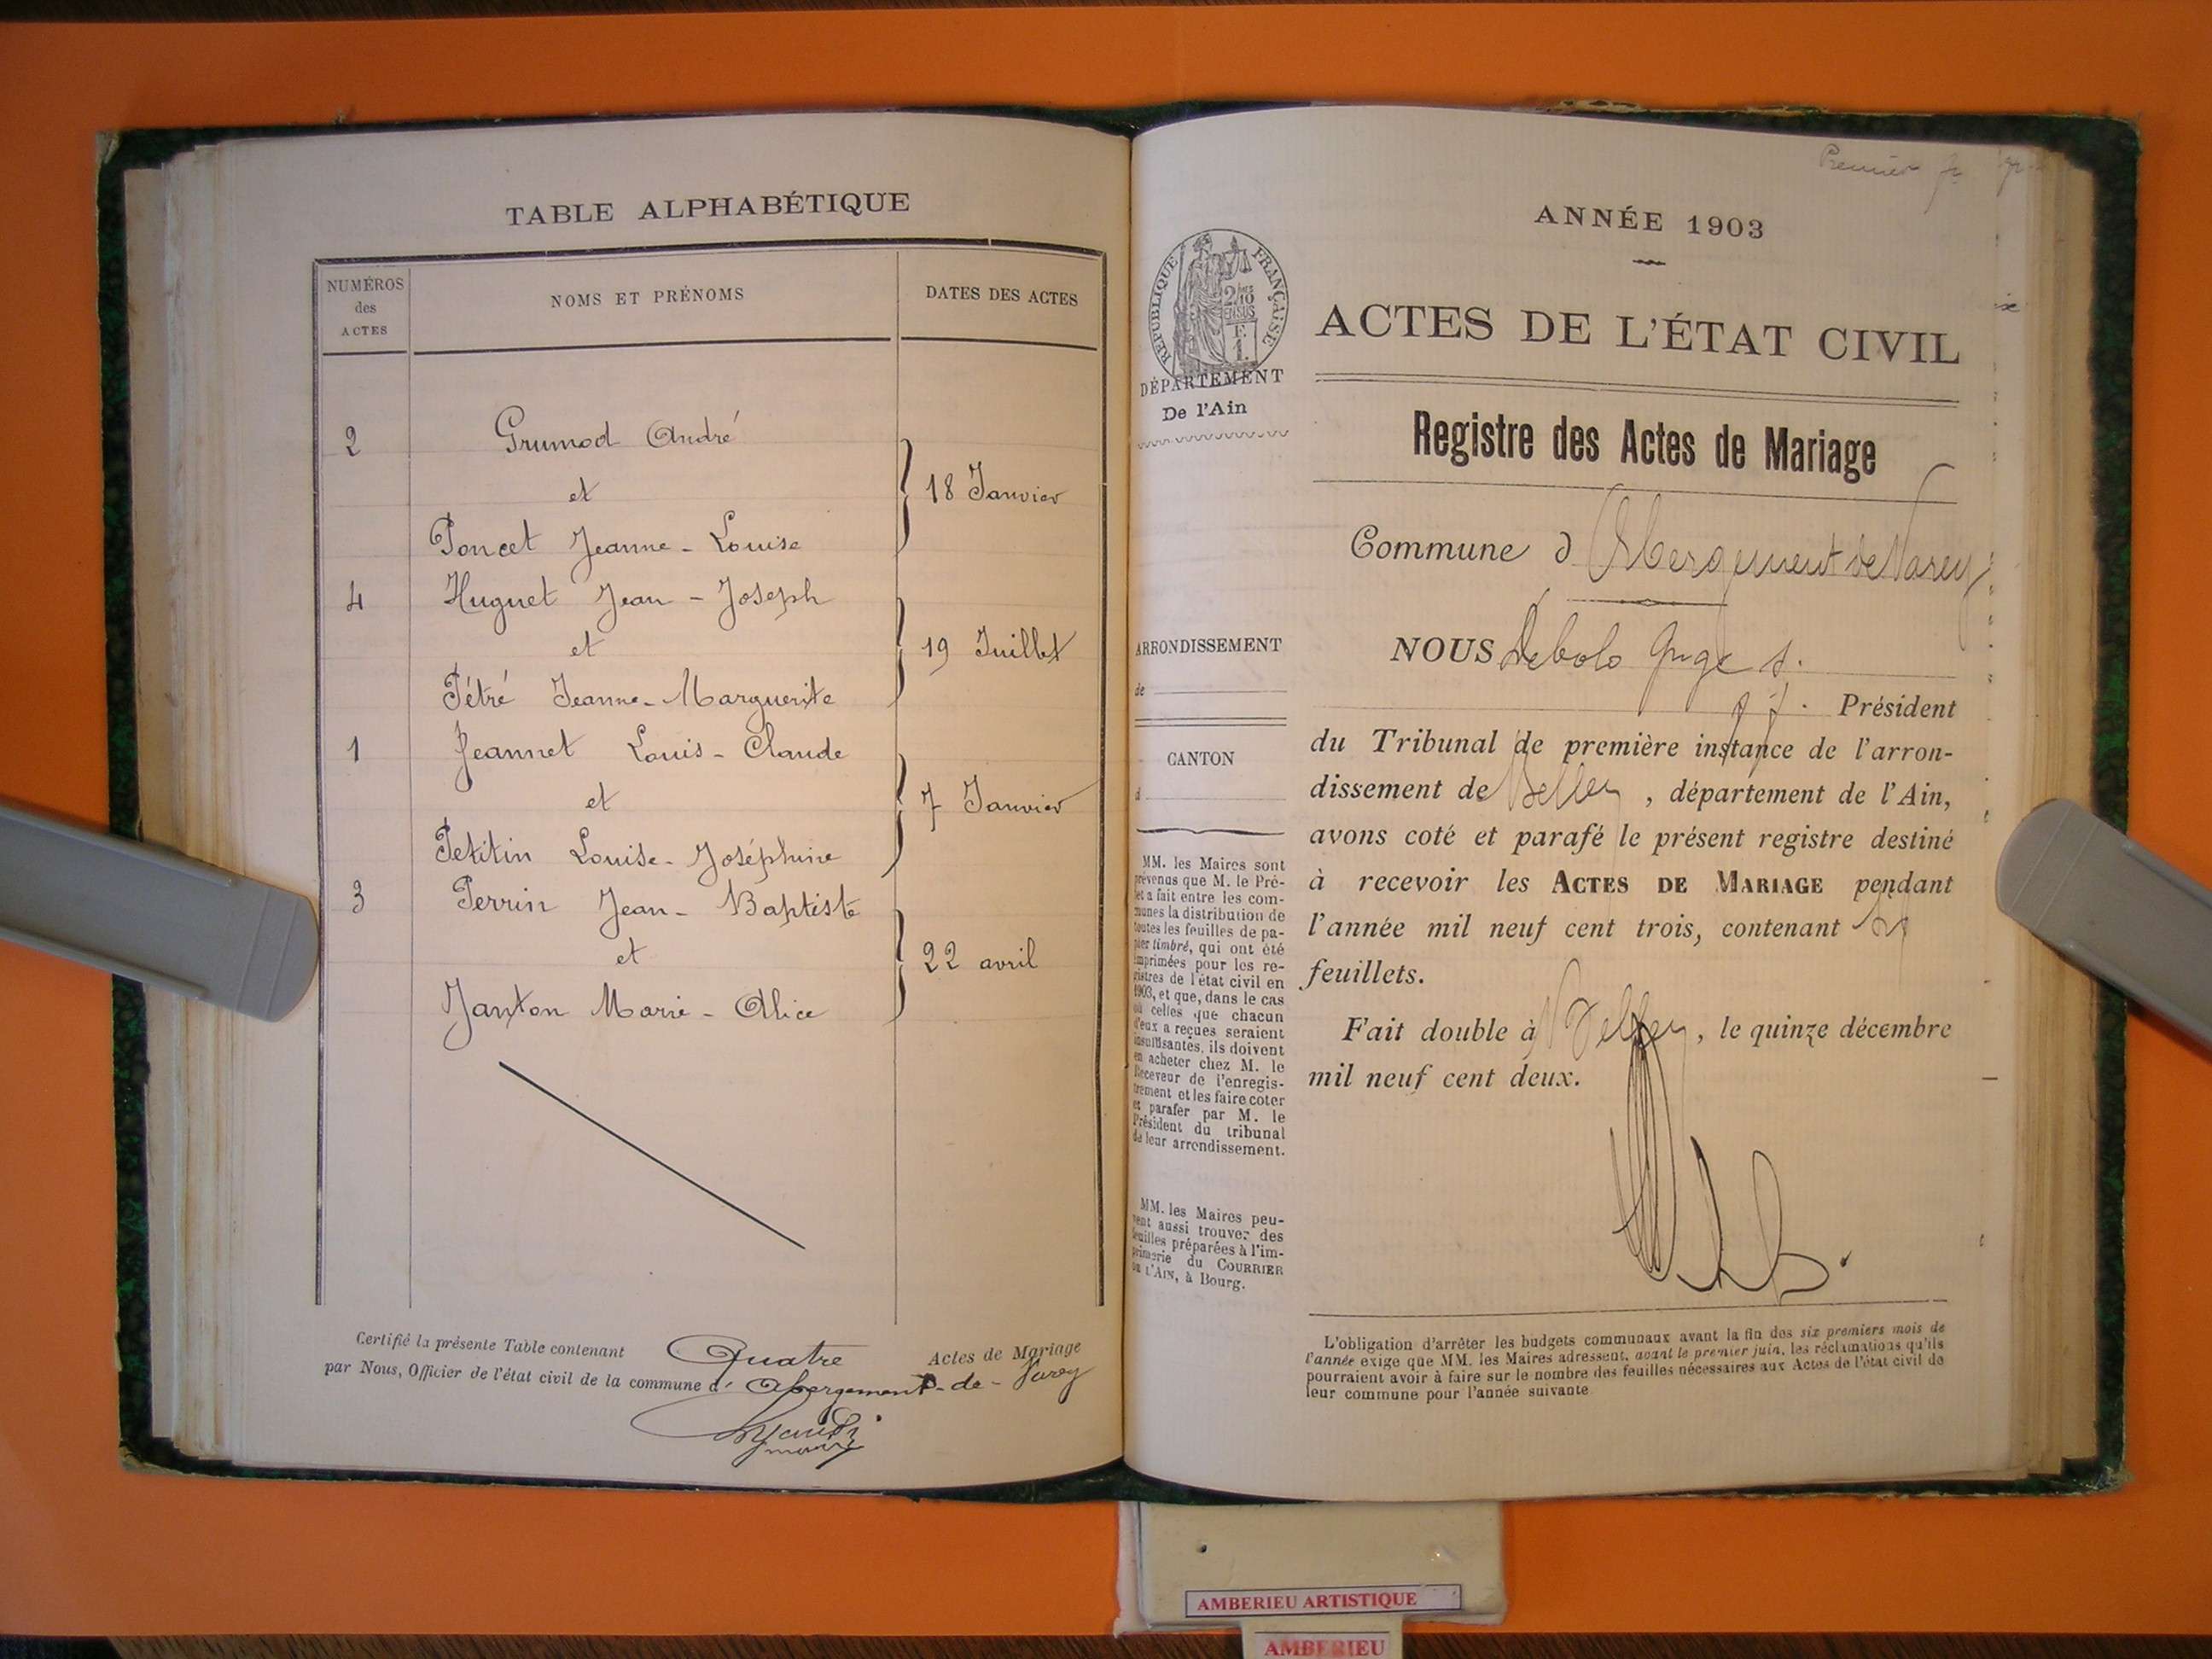 TABLE ALPHABÉTIQUE
NUMÉROS
des
ACTES
NOMS ET PRÉNOMS
DATES DES ACTES
2 Grumod André
et
18 Janvier
Poncet Jeanne-Louise
4 Huguet Jean-Joseph
et
19 Juillet
Pétré Jeanne-Marguerite
1 Jeannet Louis-Claude
et
7 Janvier
Petitin Louise-Joséphine
3 Perrin Jean-Baptiste
et
22 avril
Janton Marie-Alice
Certifié la présente Table contenant Quatre Actes de Mariage
par Nous, Officier de l'état civil de la commune d' Abergement-de-Varey
Premier
ANNÉE 1903
RÉPUBLIQUE FRANÇAISE
DÉPARTEMENT
De l'Ain
ARRONDISSEMENT
de
CANTON
d
MM. les Maires sont
prévenus que M. le Pré-
fet a fait entre les com-
munes la distribution de
toutes les feuilles de pa-
pier timbré, qui ont été
imprimées pour les re-
gistres de l'état civil en
1903, et que, dans le cas
où celles que chacun
d'eux a reçues seraient
insuffisantes, ils doivent
en acheter chez M. le
Receveur de l'enregis-
trement et les faire coter
et parafer par M. le
Président du tribunal
de leur arrondissement.
MM. les Maires peu-
vent aussi trouver des
feuilles préparées à l'im-
primerie du COURRIER
DE L'AIN, à Bourg.
ACTES DE L'ÉTAT CIVIL
Registre des Actes de Mariage
Commune d Abergement de Varey
NOUS Debolo Juge s.
Président
du Tribunal de première instance de l'arron-
dissement de Belley, département de l'Ain,
avons coté et parafé le présent registre destiné
à recevoir les ACTES DE MARIAGE pendant
l'année mil neuf cent trois, contenant
feuillets.
Fait double à Belley, le quinze décembre
mil neuf cent deux.
L'obligation d'arrêter les budgets communaux avant la fin des six premiers mois de
l'année exige que MM. les Maires adressent, avant le premier juin, les réclamations qu'ils
pourraient avoir à faire sur le nombre des feuilles nécessaires aux Actes de l'état civil de
leur commune pour l'année suivante
AMBERIEU ARTISTIQUE
AMBERIEU